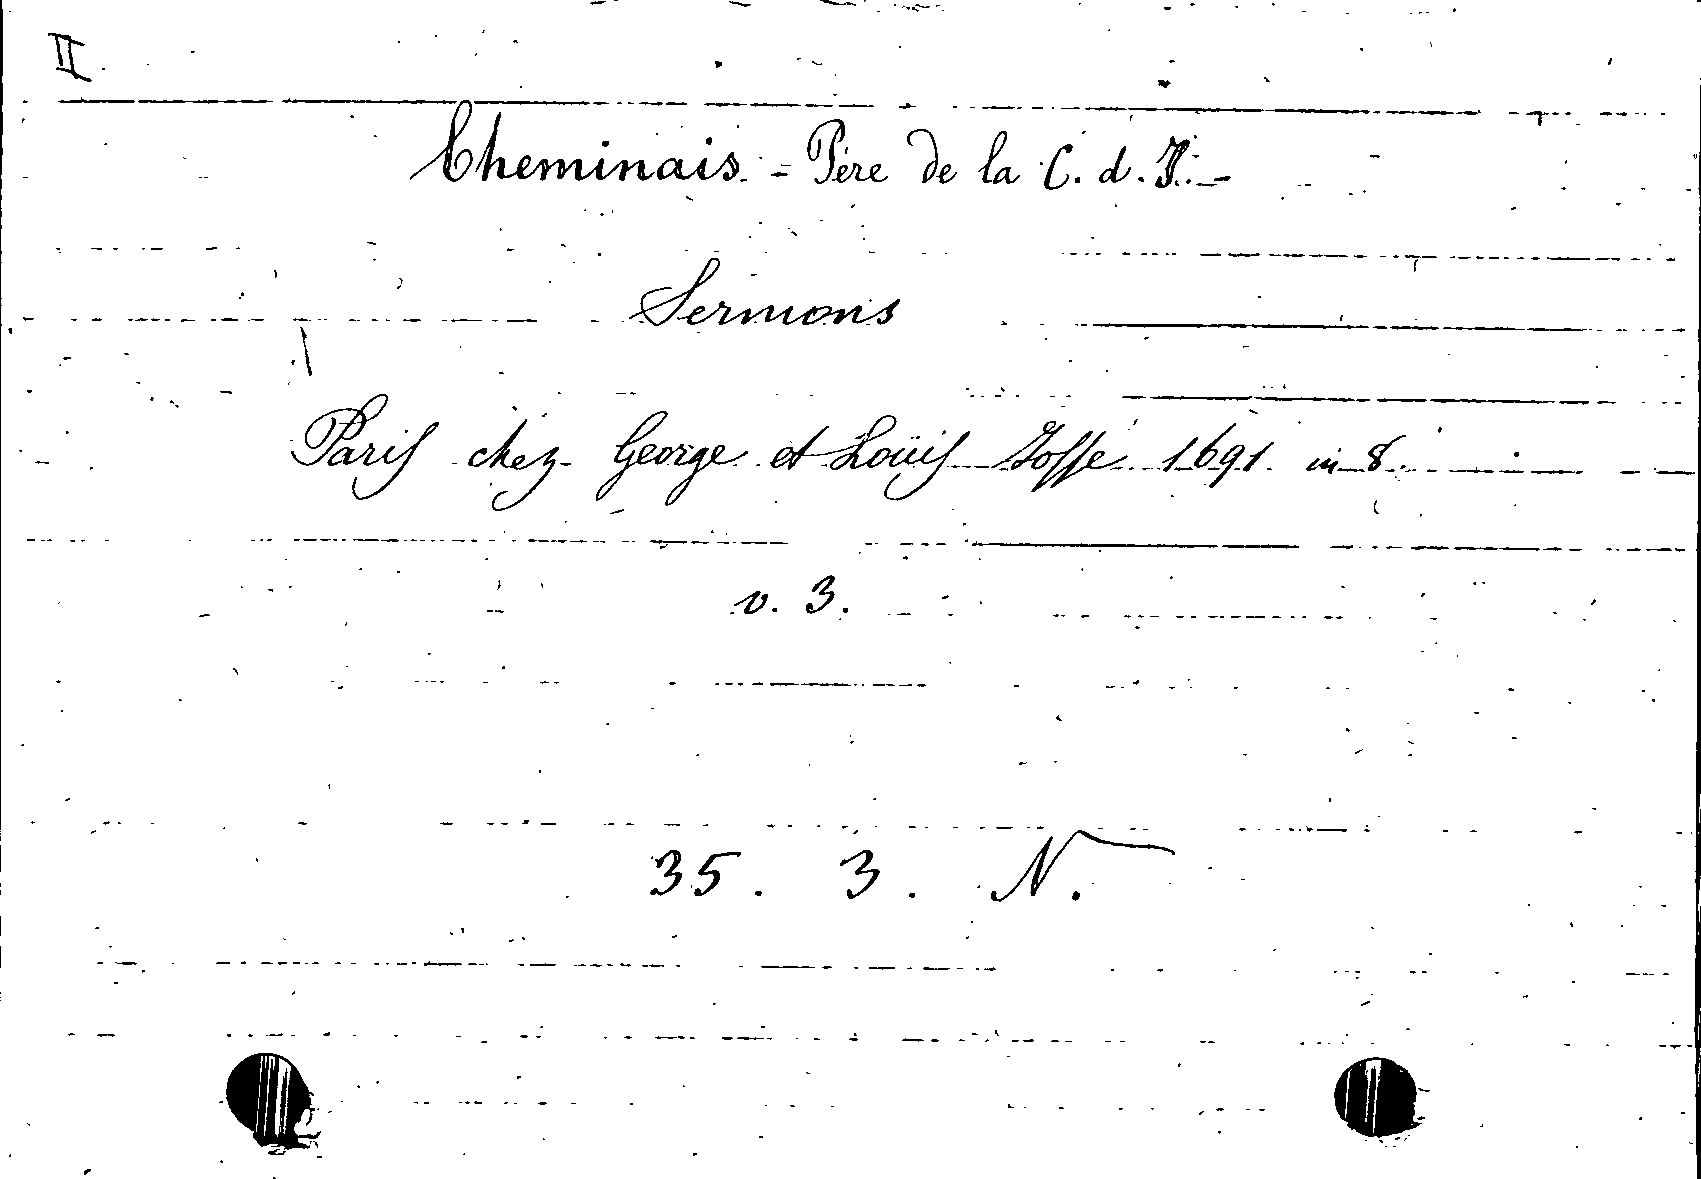 II
Cheminais = Père de la C. d. J. -
Sermons
Paris chez George et Loüis Josse 1691 in 8.
v. 3.
35. 3. N.